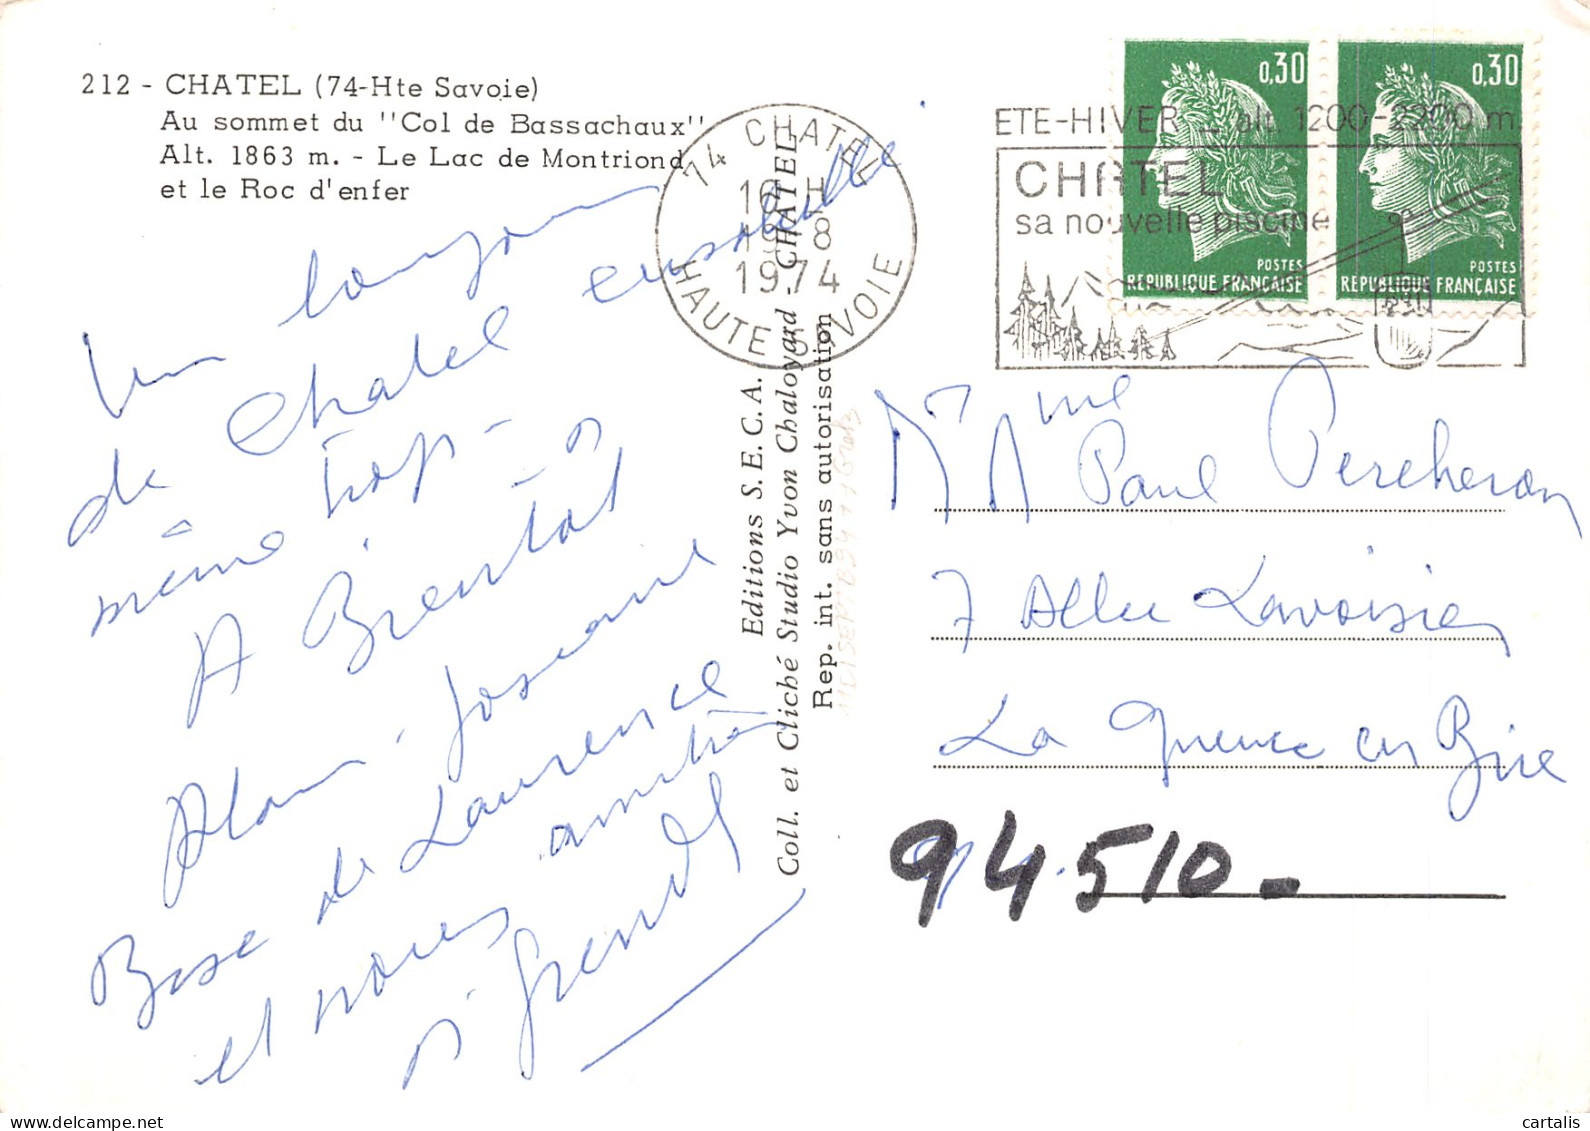 212 - CHATEL (74-Hte Savoie)
Au sommet du "Col de Bassachaux"
Alt. 1863 m. - Le Lac de Montriond
et le Roc d'enfer
Un bonjour
de Chatel ensoleillé
même trop -
A Bientôt
Alain, Josiane
Bise de Laurence
et nous amitiés
74 CHATEL
16 H
19-8
1974
HAUTE SAVOIE
Editions S.E.C.A.
Coll. et Cliché Studio Yvon Chaloyard - CHATEL
Rep. int. sans autorisation
0,30
POSTES
REPUBLIQUE FRANÇAISE
0,30
POSTES
REPUBLIQUE FRANÇAISE
ETE-HIVER - alt. 1200-2200 m.
CHATEL
sa nouvelle piscine
Mr Mme
Paul Percheron
7 Allee Lavoisier
La Queue en Brie
94510-
cartalis